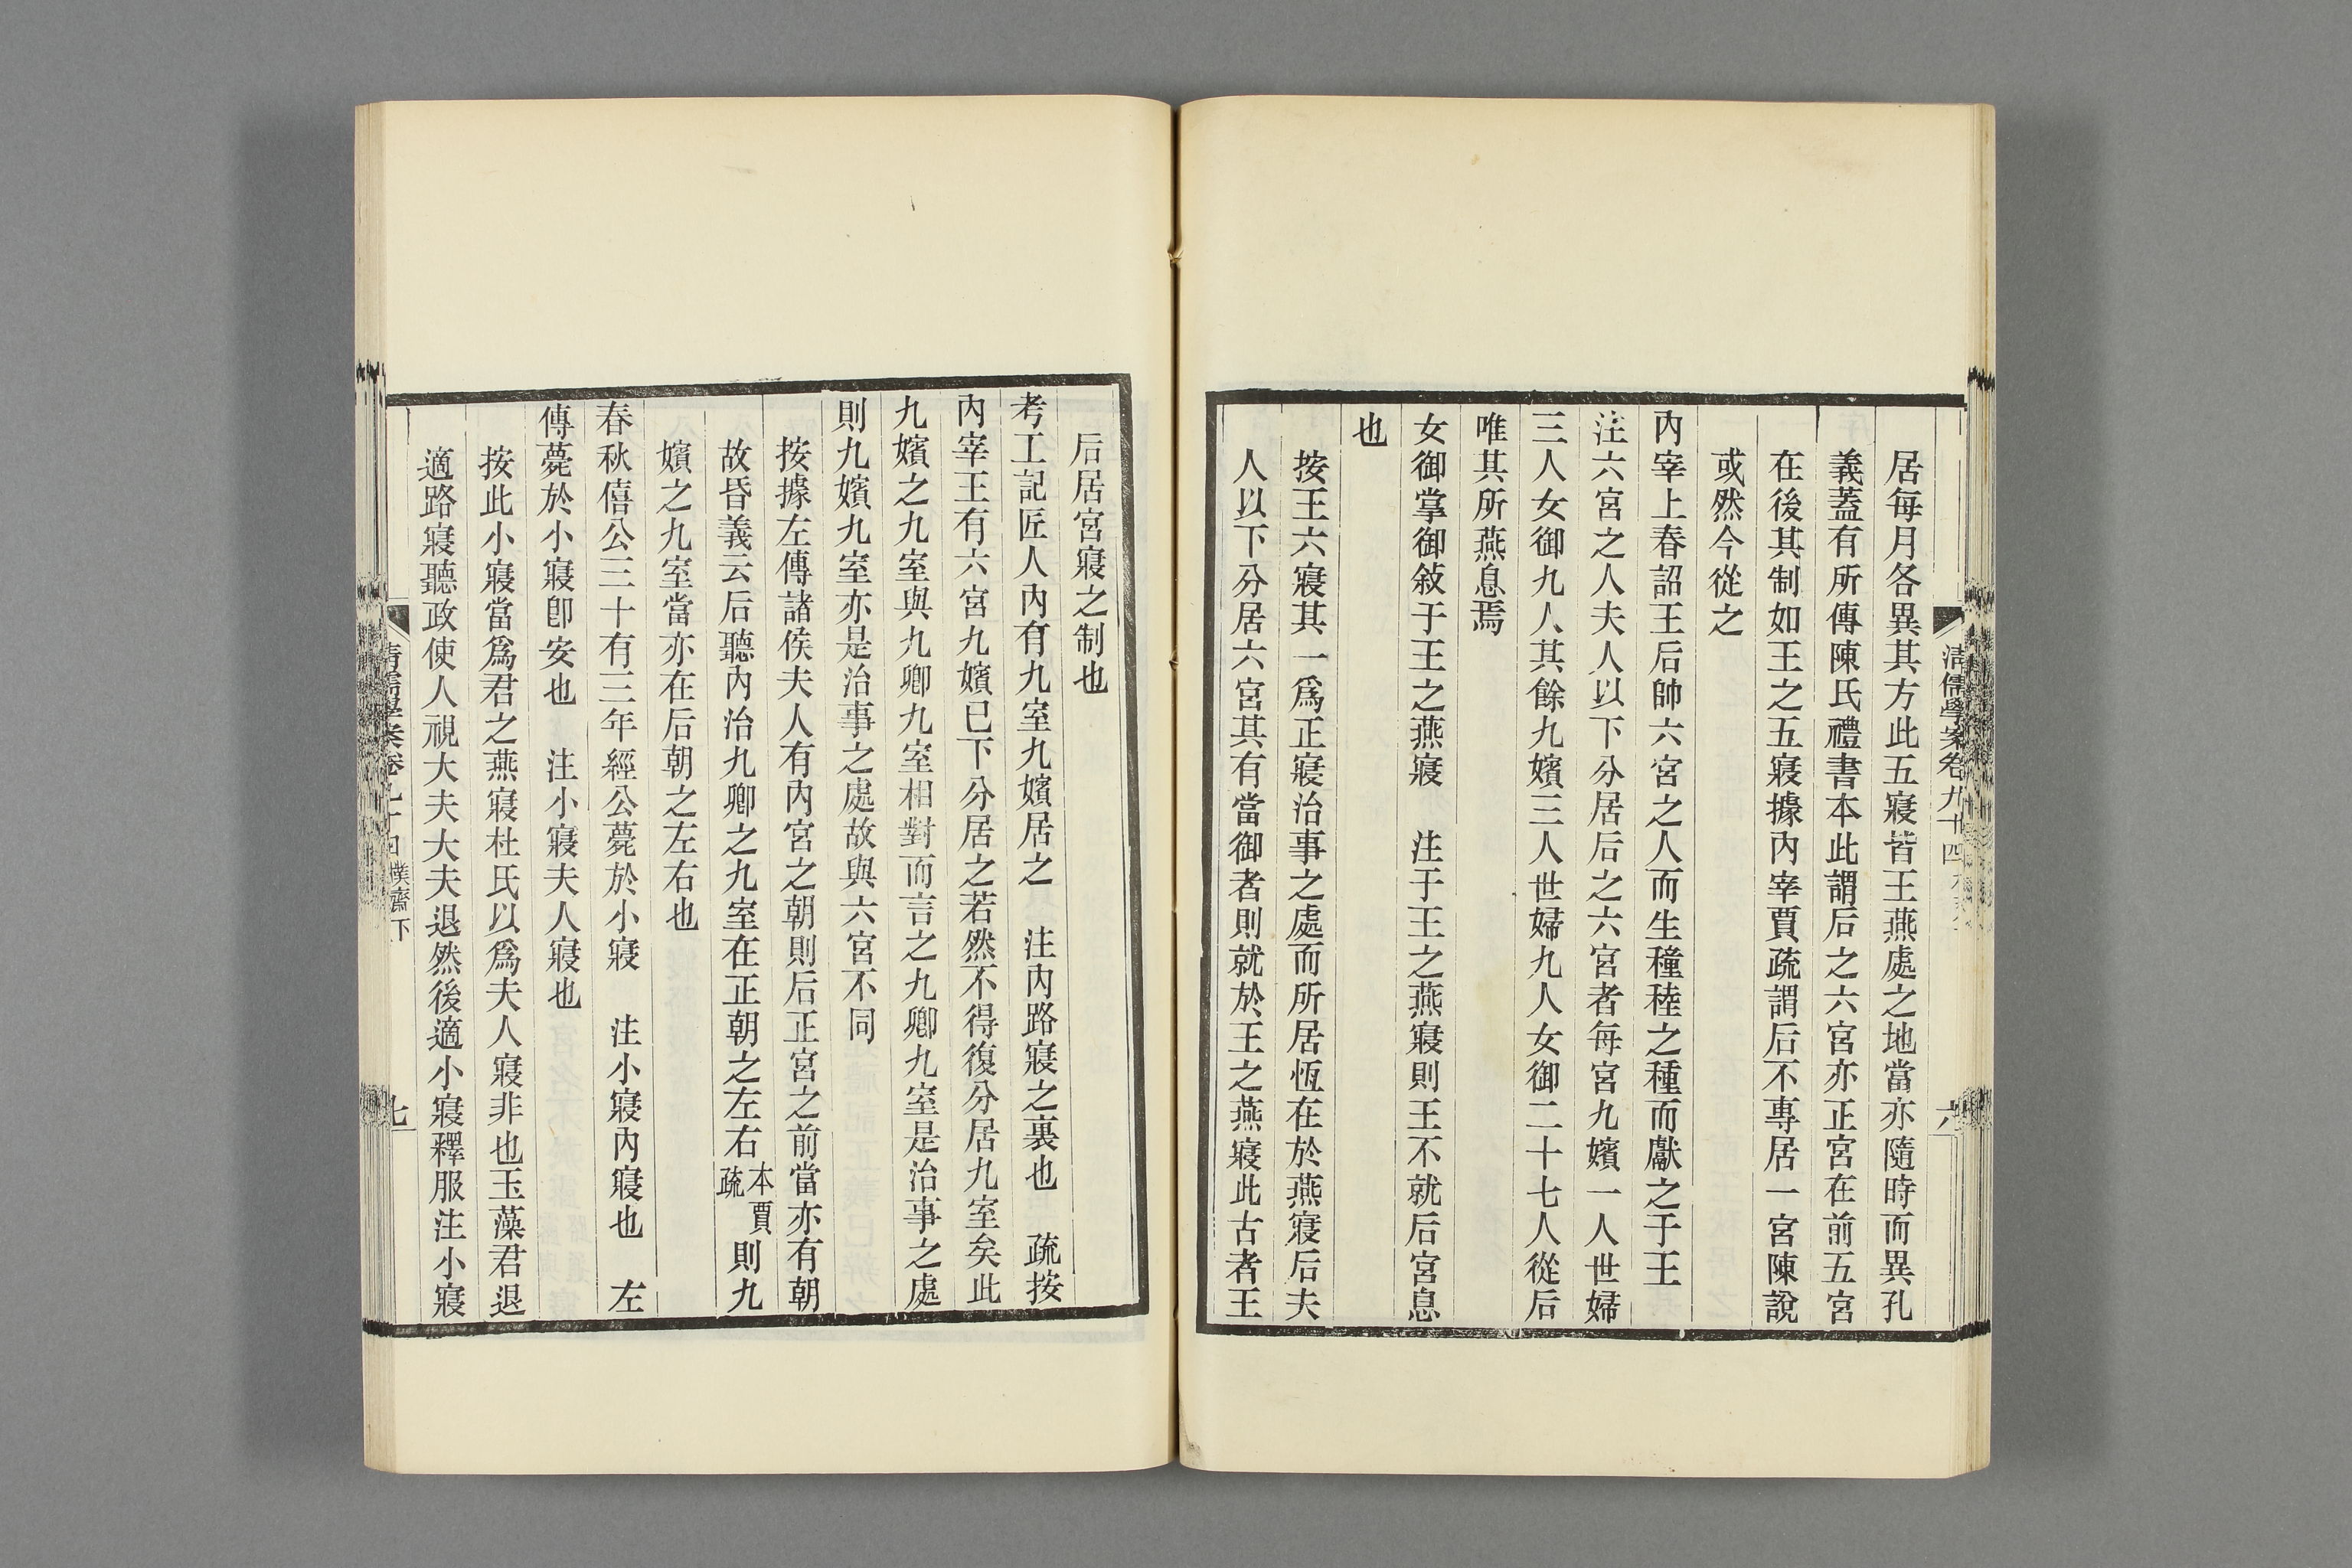 居每月各異其方此五寢皆王燕處之地當亦隨時而異孔
義蓋有所傳陳氏禮書本此謂后之六宮亦正宮在前五宮
在後其制如王之五寢據內宰賈疏謂后不專居一宮陳說
或然今從之
內宰上春詔王后帥六宮之人而生穜稑之種而獻之于王
注六宮之人夫人以下分居后之六宮者每宮九嬪一人世婦
三人女御九人其餘九嬪三人世婦九人女御二十七人從后
唯其所燕息焉
女御掌御敍于王之燕寢　注于王之燕寢則王不就后宮息
也
按王六寢其一爲正寢治事之處而所居恆在於燕寢后夫
人以下分居六宮其有當御者則就於王之燕寢此古者王
清儒學案卷九十四
六
后居宮寢之制也
考工記匠人內有九室九嬪居之　注內路寢之裏也　疏按
內宰王有六宮九嬪已下分居之若然不得復分居九室矣此
九嬪之九室與九卿九室相對而言之九卿九室是治事之處
則九嬪九室亦是治事之處故與六宮不同
按據左傳諸侯夫人有內宮之朝則后正宮之前當亦有朝
故昏義云后聽內治九卿之九室在正朝之左右本賈疏則九
嬪之九室當亦在后朝之左右也
春秋僖公三十有三年經公薨於小寢　注小寢內寢也　左
傳薨於小寢卽安也　注小寢夫人寢也
按此小寢當爲君之燕寢杜氏以爲夫人寢非也玉藻君退
適路寢聽政使人視大夫大夫退然後適小寢釋服注小寢
清儒學案卷九十四 樸齋下
七